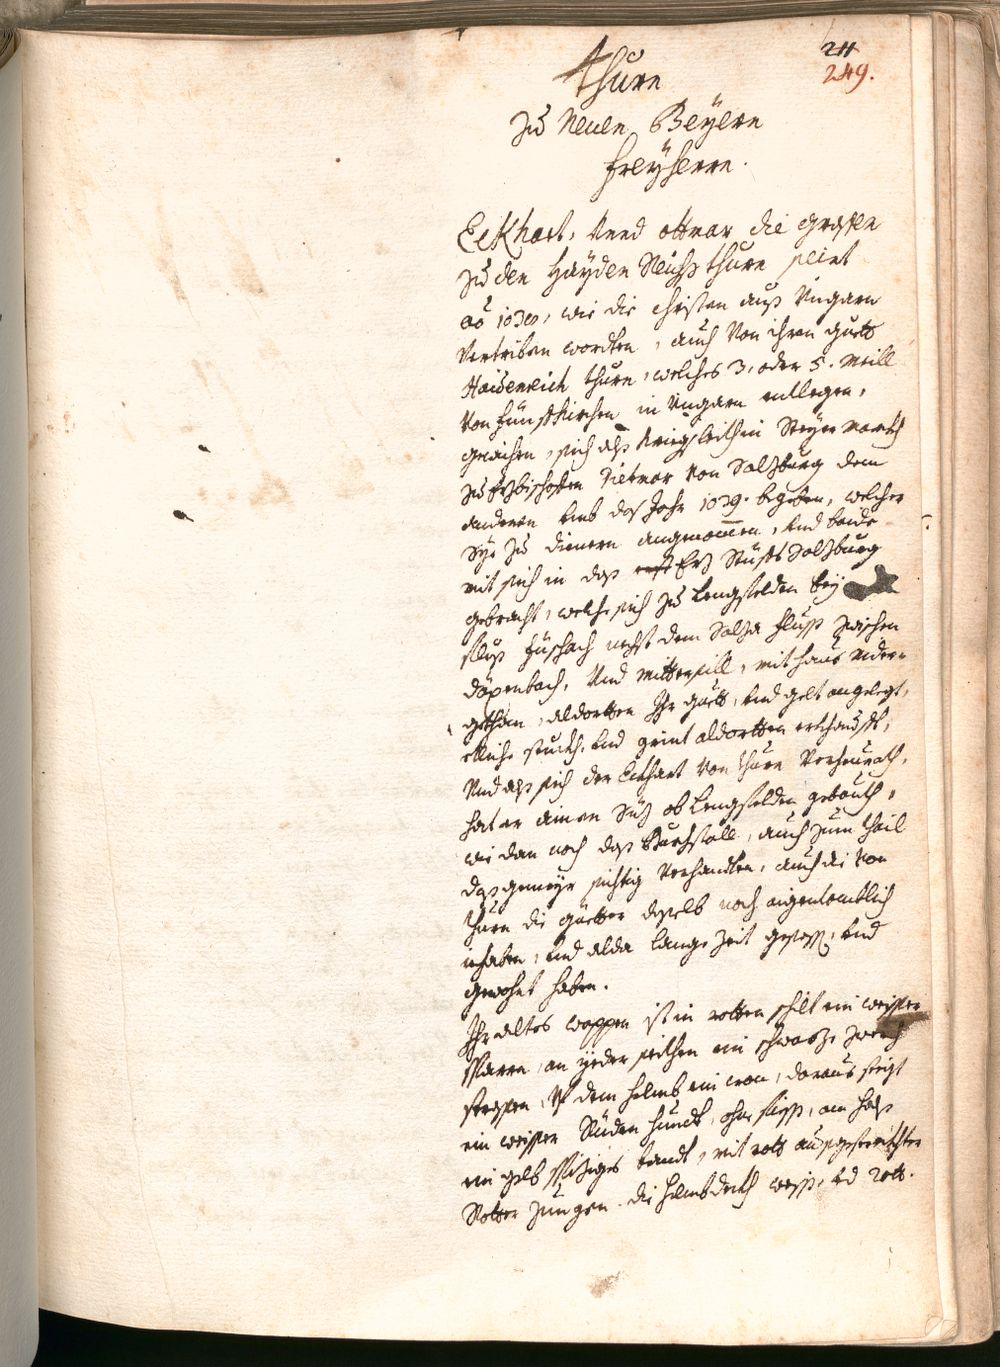 211
249.
Thurn
zu Neuen Beÿern
Freÿherrn.
Eckhart, Unnd ottmar die grossen
zu den Haÿden Reichs thurn seint
Aõ 1030, wie die christen auß Ungarn
Vertriben wordten, auch Von ihren guett
Haidenreich thurn, welches 3, oder 5. meill
Von fünffkirchen in Ungarn entlegen,
gewichen, sich alß kriegsleith in Steÿermarckh
zu Erzbischoffen Dietmar Von Salzburg dem
anderen Umb das Jahr 1039. begeben, welcher
Sÿe zu dienern angenommen, Und beide
mit sich in das Erz Stüfft Salzburg
gebracht, welche sich zu Lengfelden beÿ
fluß füschach nechst dem Salza fluß zwischen
Und mittersill, mit haus nider-
gethan, aldortten Ihr guett, Und gelt angelegt,
etliche stuckh Und aldortten erkhaufft,
Und alß sich der Eckhart Von thurn Verheurath,
hat er ainen Süz ob Lengfelden gebauth,
wie dan noch daß Burchstall, auch zum thail
das gemeÿr sichtig Verhandten, auch die Von
Thurn die güetter daselb noch aigenthomblich
inhaben, Und alda lange Zeit gesessen, Und
gewohnt haben.
Ihr altes wappen ist in rotten schilt ein weisser
Sparrn, an ÿeder seithen ein schwarze zwerch
strassen, Uf dem helmb ein cron, daraus steigt
ein weisser Rüden hundt, ohne füess, am halß
ein gelb spiziges bandt, mit roth außgestreckhter
Rotter Zungen. die helmbdeckh weiß, Ud rott.